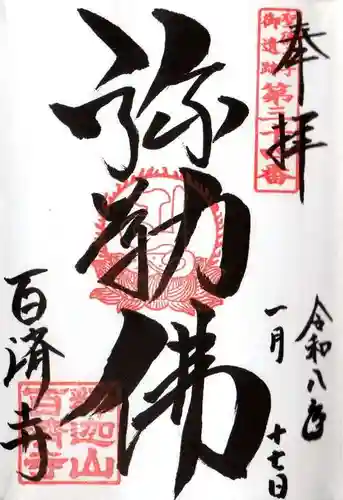 奉拝
聖徳太子
御遺跡第三十四番
弥勒佛
令和八年
一月十七日
百済寺
釈迦山
百済寺